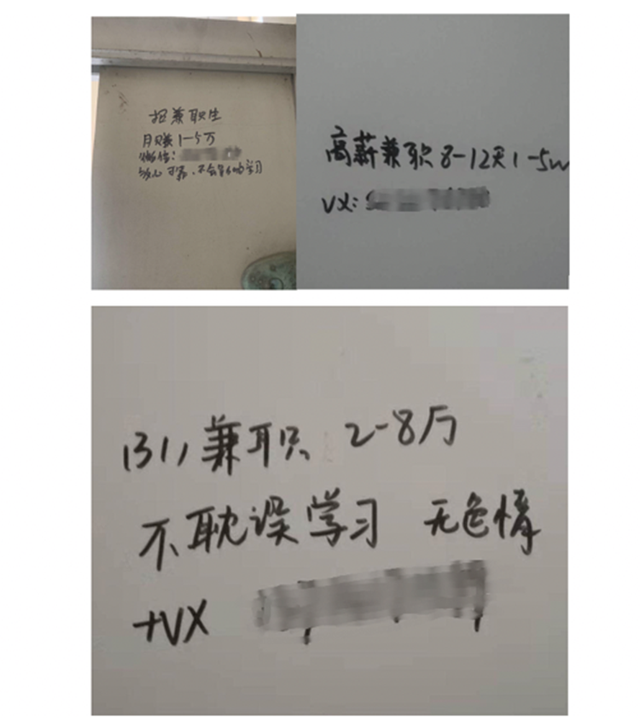 招兼职生
月赚 1-5万
微信:
安心可靠,不会影响学习
高薪兼职 8-12天 1-5w
VX:
兼职 2-8万
不耽误学习 无色情
+VX